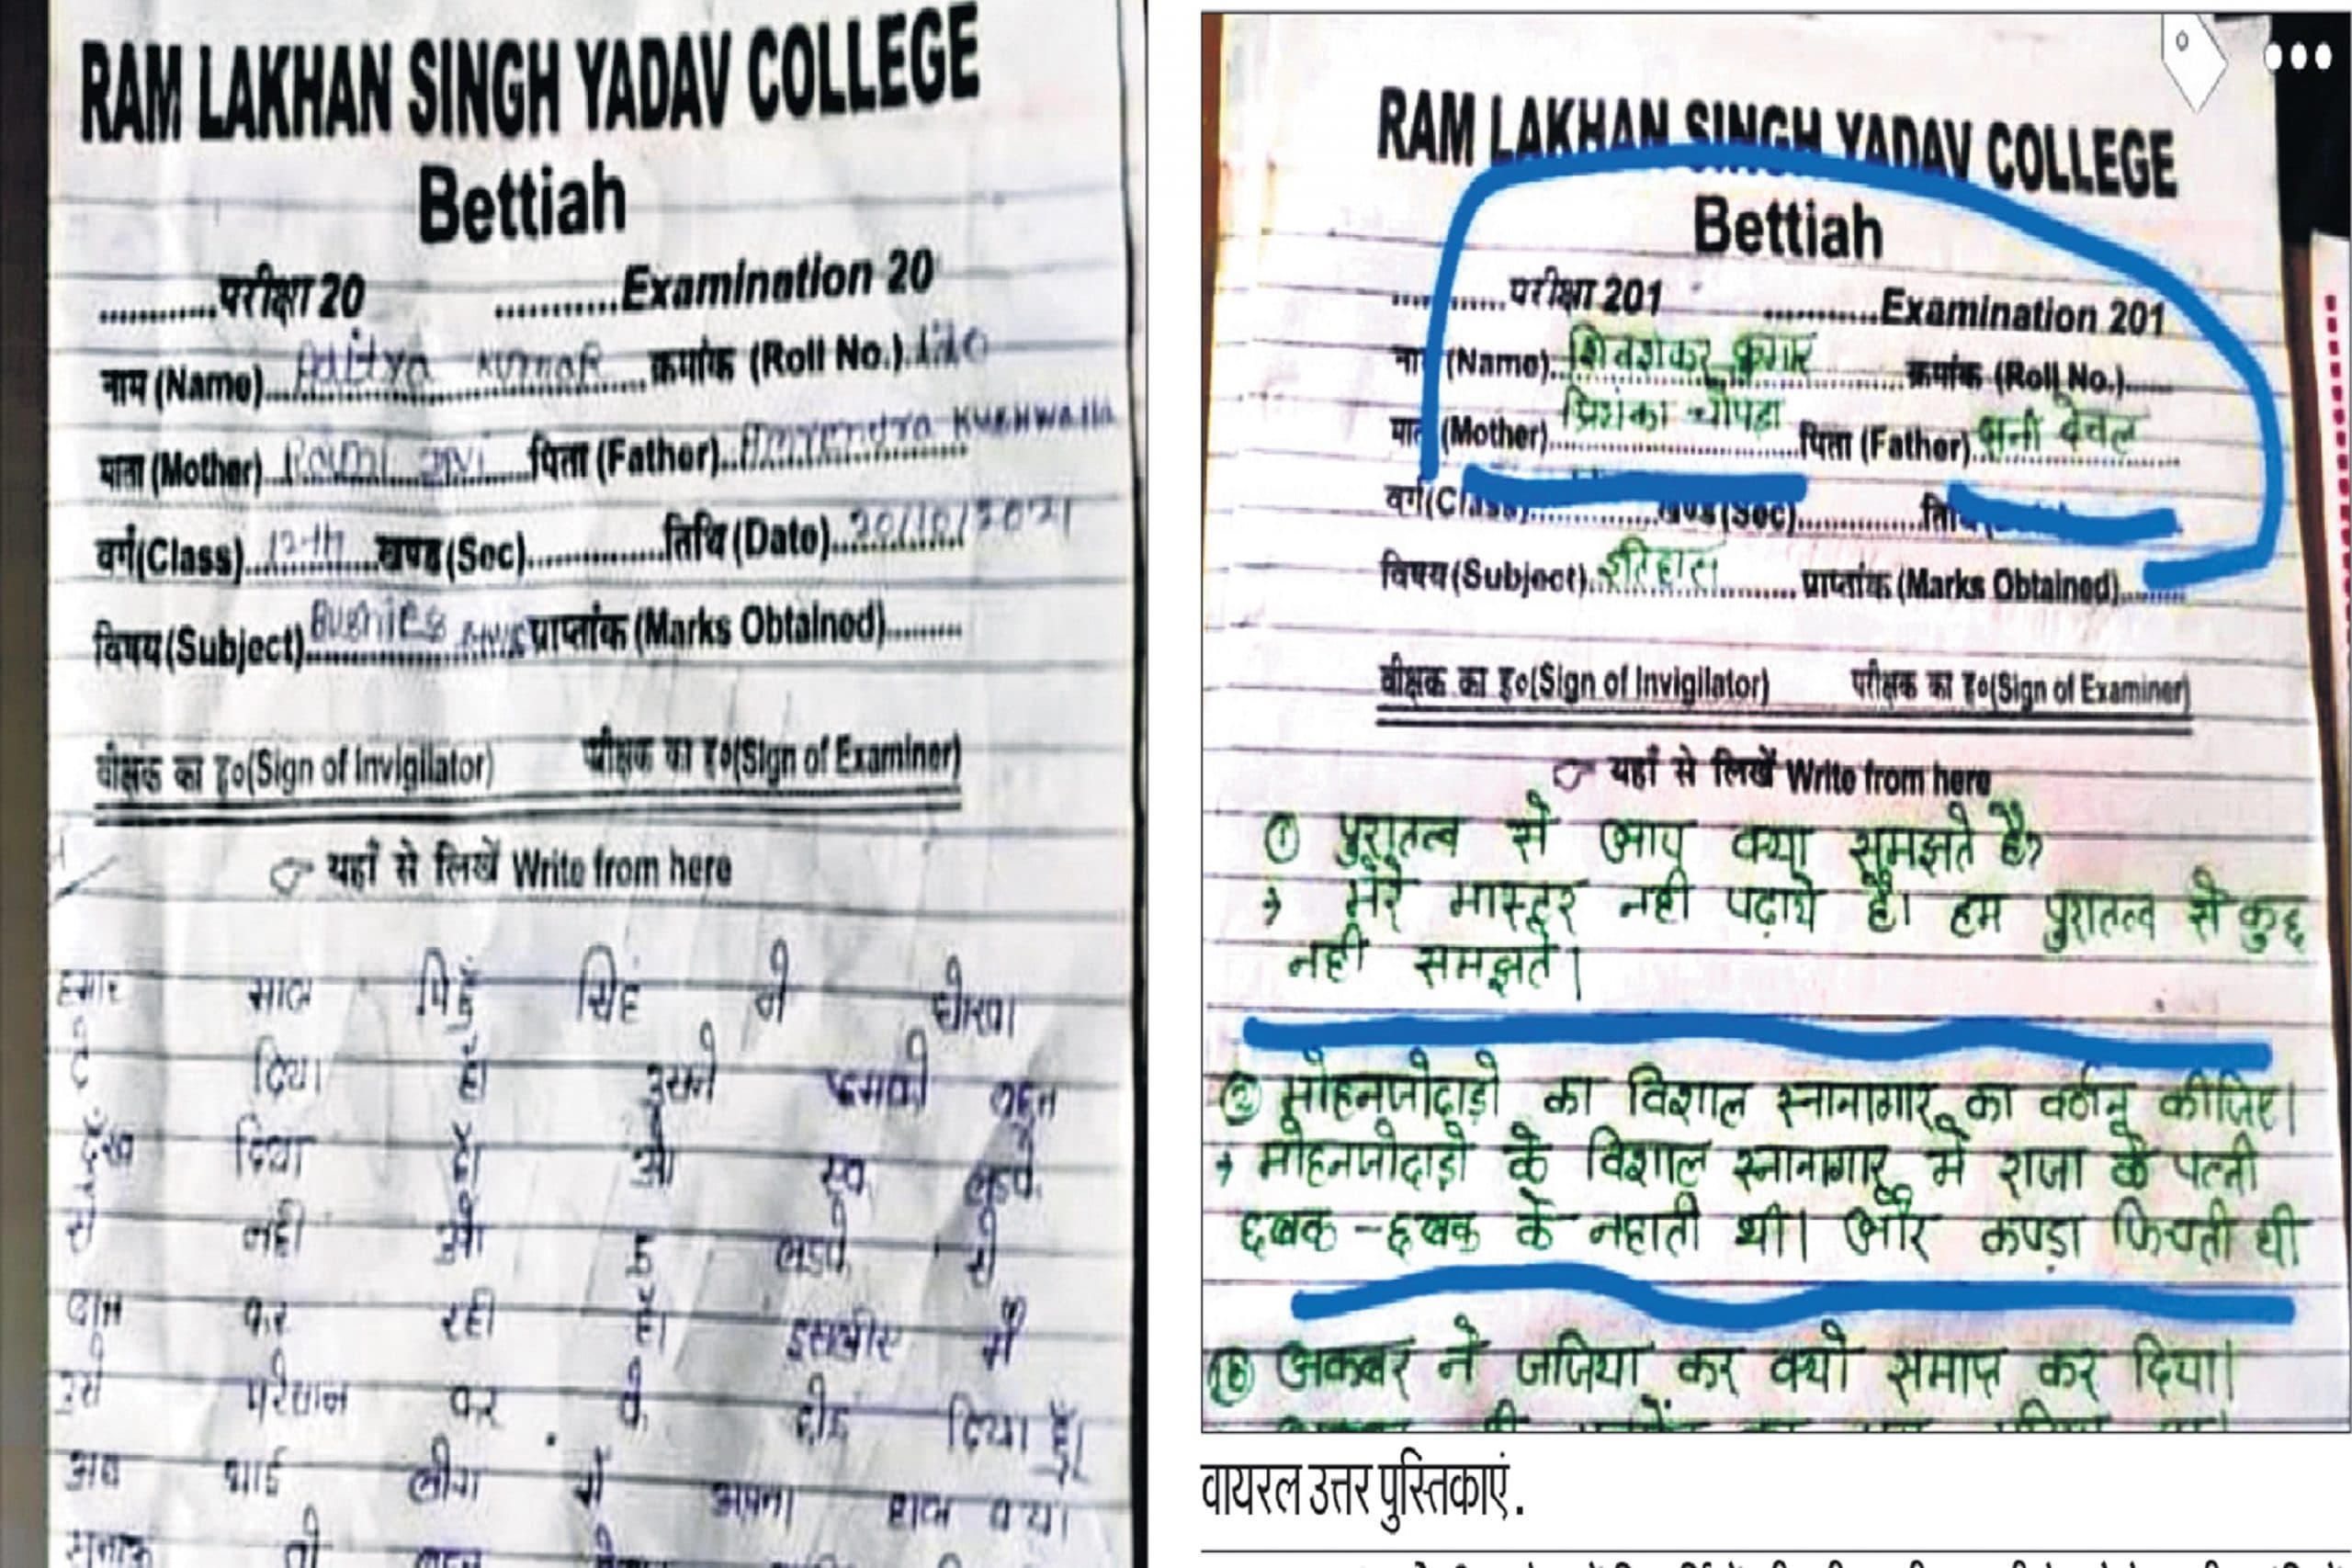 RAM LAKHAN SINGH YADAV COLLEGE
Bettiah
............परीक्षा 20 ............Examination 20
नाम (Name) Aditya KUMAR क्रमांक (Roll No.)
माता (Mother) पिता (Father) KUSHWAHA
वर्ग(Class) 12th खण्ड (Sec)............. तिथि (Date) 20/10/2021
विषय (Subject) प्राप्तांक (Marks Obtained).........
वीक्षक का ह०(Sign of Invigilator) परीक्षक का ह०(Sign of Examiner)
यहाँ से लिखें Write from here
हमार साथ पिंटू सिंह ने धोखा
दे दिया है। उसने हमको बहुत
दुःख दिया है।
से नही
बात कर रही है। इसलीए में
उसे परेशान कर के छोड़ दिया हूँ।
अब भाई लोग में अपना हाल क्या
RAM LAKHAN SINGH YADAV COLLEGE
Bettiah
............परीक्षा 201 ............Examination 201
(Name) शिवशंकर कुमार क्रमांक (Roll No.)......
(Mother) प्रियंका चोपड़ा पिता (Father) सनी देवल
वर्ग(Class) खण्ड (Sec)
विषय (Subject) इतिहास प्राप्तांक (Marks Obtained)
वीक्षक का ह०(Sign of Invigilator) परीक्षक का ह०(Sign of Examiner)
यहाँ से लिखें Write from here
① पुरातत्व से आप क्या समझते है?
→ मेरे मास्टर नही पढ़ाये है। हम पुरातत्व से कुछ
नही समझते।
② मोहनजोदाड़ो का विशाल स्नानागार का वर्णन कीजिए।
→ मोहनजोदाड़ो के विशाल स्नानागार में राजा के पत्नी
छबक-छबक के नहाती थी। और कपड़ा फिचती थी
अकबर ने जजिया कर क्यो समाप्त कर दिया।
वायरल उत्तर पुस्तिकाएं.